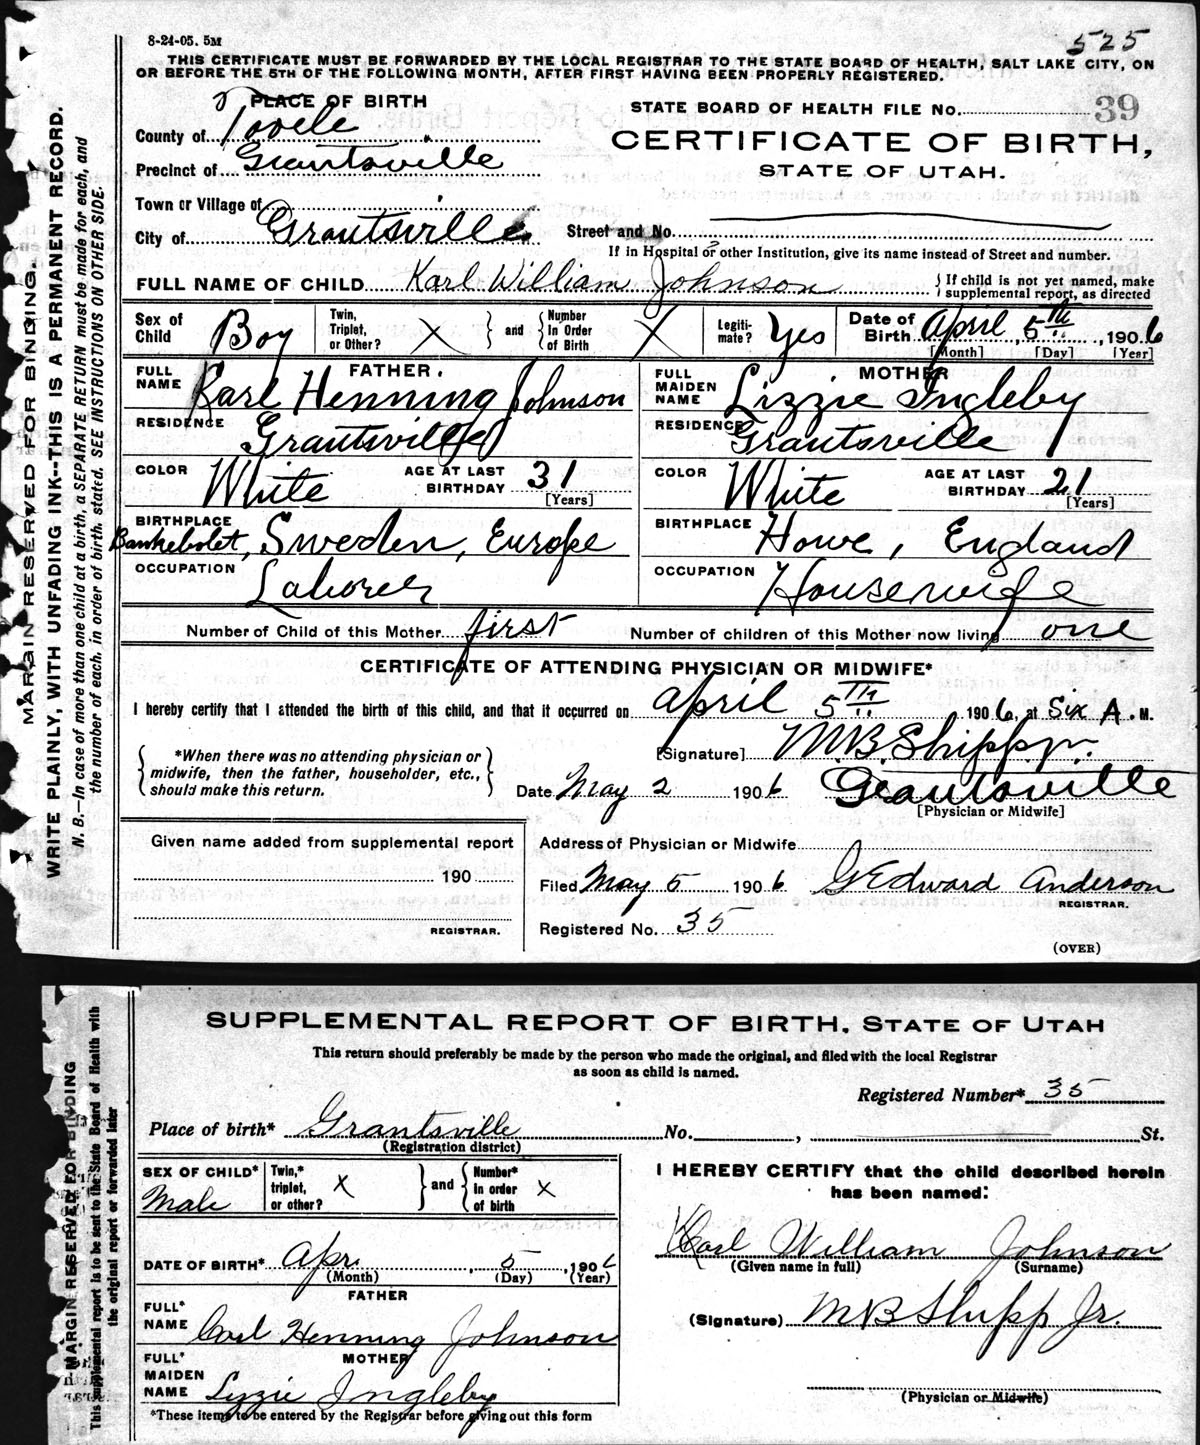 8-24-05. 5M
525
THIS CERTIFICATE MUST BE FORWARDED BY THE LOCAL REGISTRAR TO THE STATE BOARD OF HEALTH, SALT LAKE CITY, ON
OR BEFORE THE 5TH OF THE FOLLOWING MONTH, AFTER FIRST HAVING BEEN PROPERLY REGISTERED.
PLACE OF BIRTH
STATE BOARD OF HEALTH FILE No. 39
County of Tooele
CERTIFICATE OF BIRTH,
Precinct of Grantsville
STATE OF UTAH.
Town or Village of
City of Grantsville
Street and No.
If in Hospital or other Institution, give its name instead of Street and number.
FULL NAME OF CHILD Karl William Johnson
{If child is not yet named, make
supplemental report, as directed
Sex of Child Boy
Twin, Triplet, or Other? X } and { Number In Order of Birth X
Legiti-mate? Yes
Date of Birth April 5th, 1906
[Month] [Day] [Year]
FATHER.
FULL NAME Karl Henning Johnson
RESIDENCE Grantsville
COLOR White AGE AT LAST BIRTHDAY 31 [Years]
BIRTHPLACE Bankebolet, Sweden, Europe
OCCUPATION Laborer
MOTHER
FULL MAIDEN NAME Lizzie Ingleby
RESIDENCE Grantsville
COLOR White AGE AT LAST BIRTHDAY 21 [Years]
BIRTHPLACE Howe, England
OCCUPATION Housewife
Number of Child of this Mother first Number of children of this Mother now living one
CERTIFICATE OF ATTENDING PHYSICIAN OR MIDWIFE*
I hereby certify that I attended the birth of this child, and that it occurred on April 5th 1906, at Six A. M.
{*When there was no attending physician or
midwife, then the father, householder, etc.,
should make this return.}
[Signature] M.B. Shipp Jr.
Date May 2 1906 Grantsville
[Physician or Midwife]
Given name added from supplemental report
190
REGISTRAR.
Address of Physician or Midwife
Filed May 5 1906 G Edward Anderson
REGISTRAR.
Registered No. 35
(OVER)
MARGIN RESERVED FOR BINDING.
WRITE PLAINLY, WITH UNFADING INK--THIS IS A PERMANENT RECORD.
N. B.—In case of more than one child at a birth, a SEPARATE RETURN must be made for each, and
the number of each, in order of birth, stated. SEE INSTRUCTIONS ON OTHER SIDE.
SUPPLEMENTAL REPORT OF BIRTH, STATE OF UTAH
This return should preferably be made by the person who made the original, and filed with the local Registrar
as soon as child is named.
Registered Number* 35
Place of birth* Grantsville No. , St.
(Registration district)
SEX OF CHILD* Male
Twin,* triplet, or other? X } and { Number* in order of birth X
DATE OF BIRTH* Apr. 5, 1906
(Month) (Day) (Year)
FATHER
FULL* NAME Carl Henning Johnson
MOTHER
FULL* MAIDEN NAME Lizzie Ingleby
*These items to be entered by the Registrar before giving out this form
I HEREBY CERTIFY that the child described herein
has been named:
Karl William Johnson
(Given name in full) (Surname)
(Signature) M B Shipp Jr.
(Physician or Midwife)
MARGIN RESERVED FOR BINDING
This supplemental report is to be sent to the State Board of Health with
the original report or forwarded later